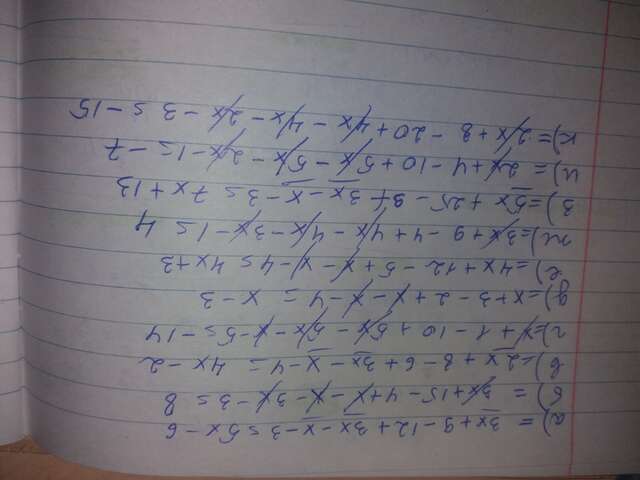 а) = 3x+9-12+3x-x-3=5x-6
б) = 3x+15-4+x-x-3x-3=8
в) =2x+8-6+3x-x-4= 4x-2
г) =x+1-10+5x-5x-x-5=-14
д) =x+3-2+x-x-4= x-3
е) =4x+12-5+x-x-4=4x+3
ж) =3x+9-4+4x-4x-3x-1=4
з) =5x+25-9+3x-x-3=7x+13
и) =2x+4-10+5x-5x-2x-1=-7
к) =2x+8-20+4x-4x-2x-3=-15